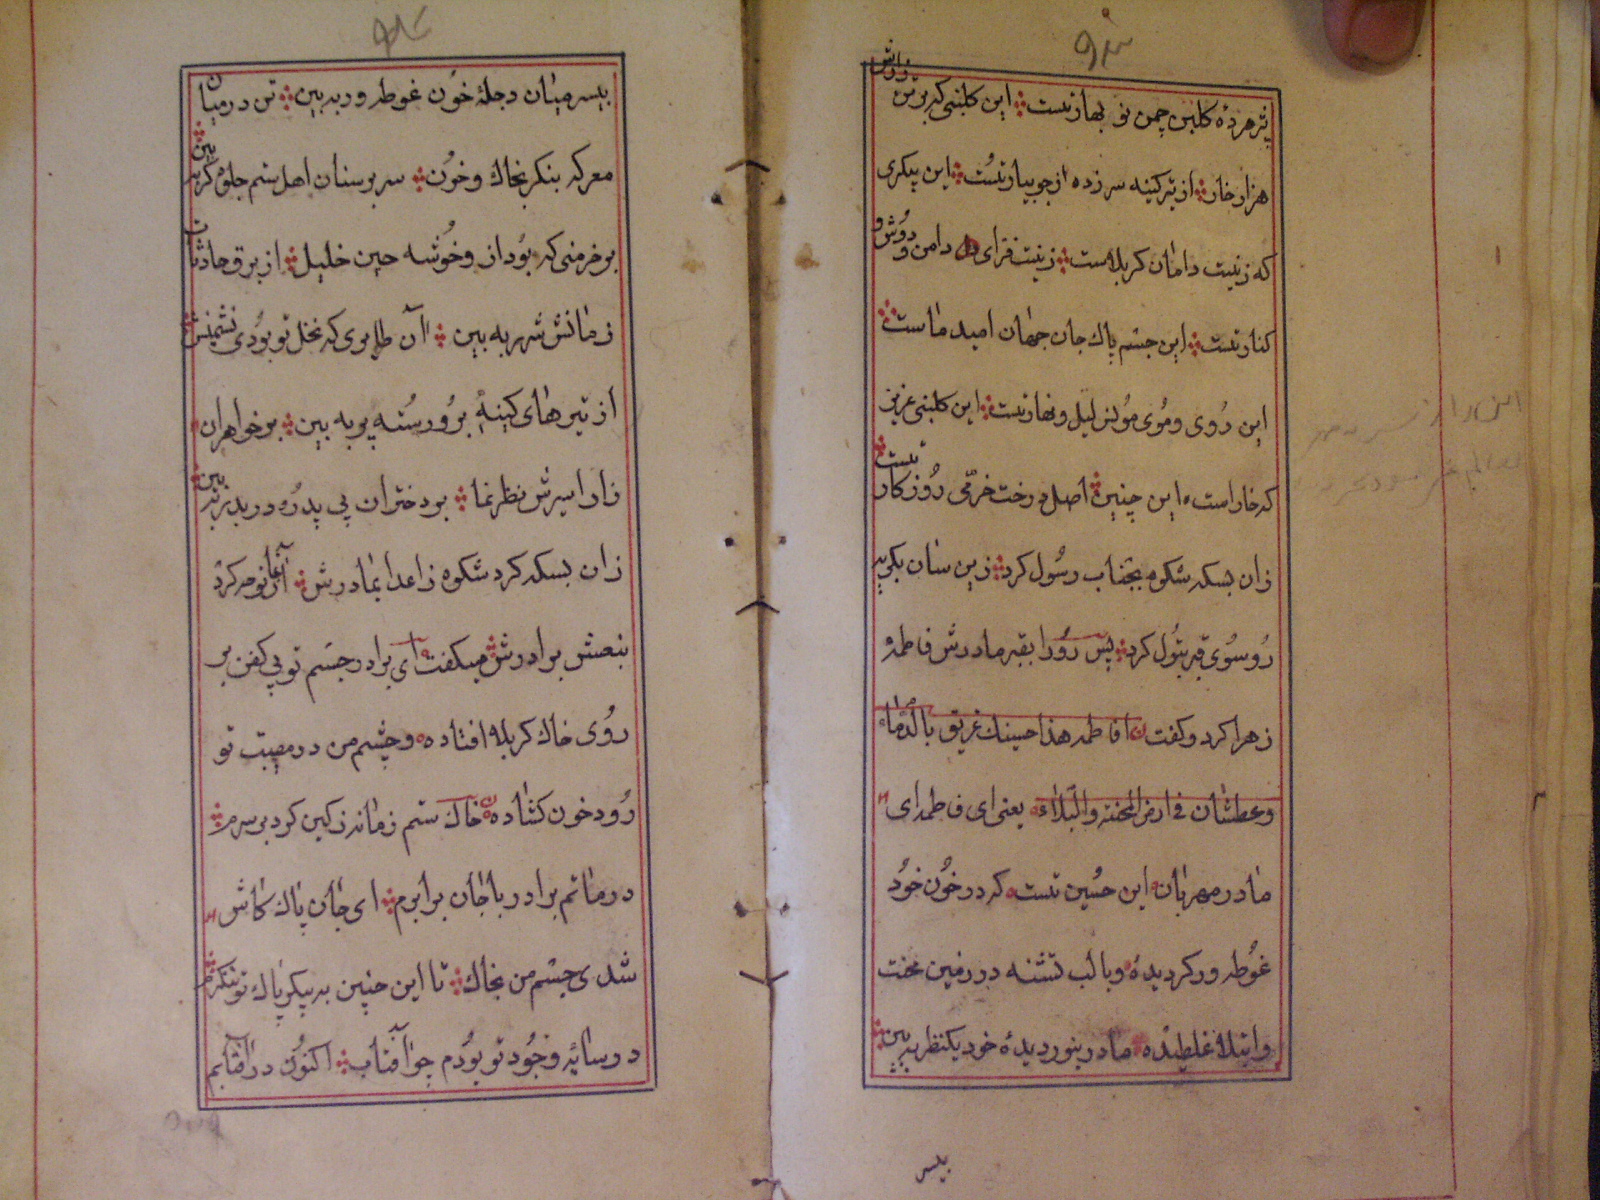 پژمردهٔ گلبن چمن نو بهار تست این گلبنی که بر تن زارش
هزار خار از تیر کینه سر زده از جویبار تست این پیکری
که زینت دامان کربلاست زینت فزای دامن و دوش و
کنار تست این جسم پاک جان جهان امید ماست
این روی و موی مونس لیل و نهار تست این گلبنی عزیز
که خار است این چنین اصل درخت خرمی روزکار تست
زان بسکه شکوه بجناب رسول کرد زین سان بگریه
رو سوی قبر بتول کرد پس رو را بقبر مادرش فاطمهٔ
زهرا کرد و گفت یا فاطمه هذا حسینک غریق بالدماء
وعطشان فی ارض المحنة والبلاء یعنی ای فاطمه ای
مادر مهربان این حسین تست که در خون خود
غوطه ور گردیده و با لب تشنه در زمین محنت
و ابتلا غلطیده مادر بنور دیدهٔ خود یکنظر ببین
بیسر
بیسر میان دجلهٔ خون غوطه ور ببین تن در میان
معرکه بنگر بخاک و خون سر بر سنان اهل ستم جلوه گر ببین
بر خرمنی که بود از و خوشه چین خلیل از برق حادثات
زمانش شرر ببین آن طایری که نخل تو بودی نشیمنش
از تیرهای کینه برو رسته پر ببین بر خواهران
زار اسیرش نظر نما بر دختران بی پدرو در بدر ببین
زان بسکه کرد شکوه ز اعدا بمادرش آغاز نوحه کرد
بنعش برادرش میگفت ای برادر جسم تو بی کفن بر
روی خاک کربلا افتاده و چشم من در مصیبت تو
رود خون کشاده خاک ستم زمانه ز کین کرد بر سرم
در ماتم برادر با جان برابرم ای جان پاک کاش
شدی جسم من بخاک تا این چنین به پیکر پاک تو ننگرم
در سایه وجود تو بودم چو آفتاب اکنون در آفتابم